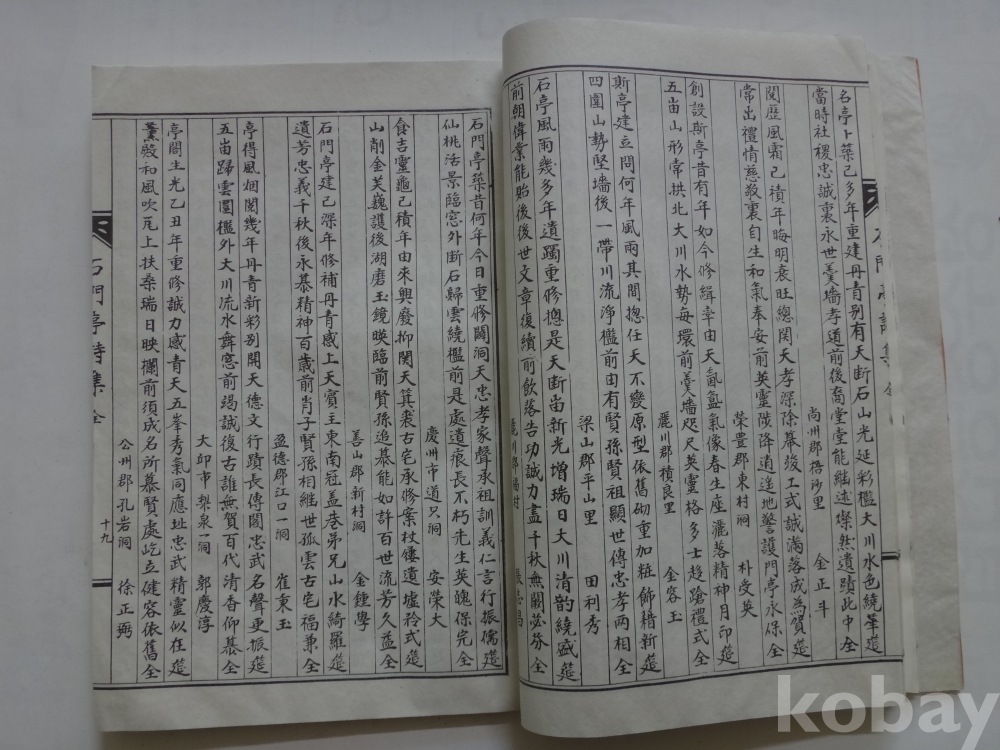 名亭卜築已多年重建丹青别有天斷石山光延彩檻大川水色繞華筵
當時社稷忠誠裏永世羹墻孝道前後裔堂堂能繼述燦然遺蹟此中全
尚州郡梧沙里 金正斗
閱歷風霜已積年晦明衰旺總関天孝深除幕竣工式誠滿落成為賀筵
常出禮情慈敬裏自生和氣泰安前英靈陟降逍遙地警護門亭永保全
榮豊郡東村洞 朴受英
創設斯亭昔有年如今修緝幸由天氤氳氣像春生座灑落精神月印筵
五畝山形常拱北大川水勢每環前羹墻咫尺英靈格多士趍蹌禮式全
麗川郡積良里 金容玉
斯亭建立問何年風雨其間揔任天不變原型依舊砌重加粧飾藉新筵
四圍山勢堅墻後一帶川流淨檻前由有賢孫賢祖顯世傳忠孝兩相全
梁山郡平山里 田利秀
石亭風雨幾多年遺躅重修摠是天斷畝新光增瑞日大川清韵繞盛筵
前朝偉業能貽後後世文章復續前飲落告功誠力盡千秋無闕必芬全
石門亭築昔何年今日重修闢洞天忠孝家聲承祖訓義仁言行振儒筵
仙桃活景臨窓外斷石歸雲繞檻前是處遺痕長不朽先生英魄保完全
慶州市道只洞 安榮大
食吉靈龜己積年由來興廢抑関天箕裘古宅承修案杖僂遺墟矜式筵
山削金芙巍護後湖磨玉鏡暎臨前賢孫追慕能如許百世流芳久益全
善山郡新村洞 金鍾學
石門亭建己深年修補丹青感上天賓王東南冠盖巷弟兄山水綺羅筵
遺芳忠義千秋後永慕精神百歲前肖子賢孫相継世孤雲古宅福兼全
盈德郡江口一洞 崔秉玉
亭得風烟閱幾年丹青新彩别開天德文行蹟長傳閣忠武名聲更振筵
五畝歸雲圍檻外大川流水舞窓前竭誠復古誰無賀百代清香仰慕全
大邱市梨泉一洞 郭慶淳
亭閣生光乙丑年重修誠力感青天五峯秀氣同應址忠武精靈似在筵
薰殿和風吹瓦上扶桑瑞日映欄前須成名所慕賢處屹立健容依舊全
公州郡孔岩洞 徐正弼
石門亭詩集 全
十九
kobay